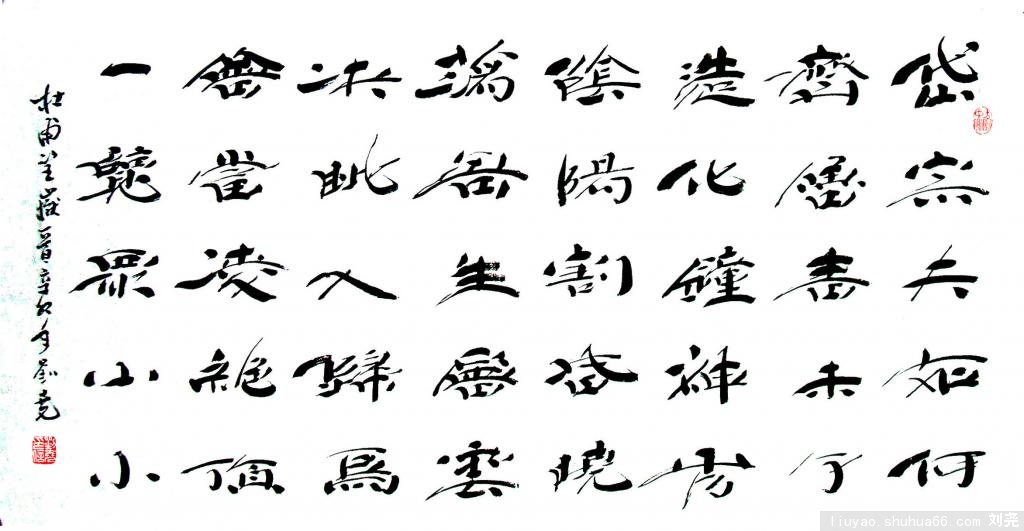 岱宗夫如何
齊魯青未了
造化鐘神秀
陰陽割昏曉
蕩胸生層雲
決眦入歸鳥
會當凌絕頂
一覽眾山小
杜甫望嶽一首辛卯年劉堯
liuyao.shuhua66.com 刘尧